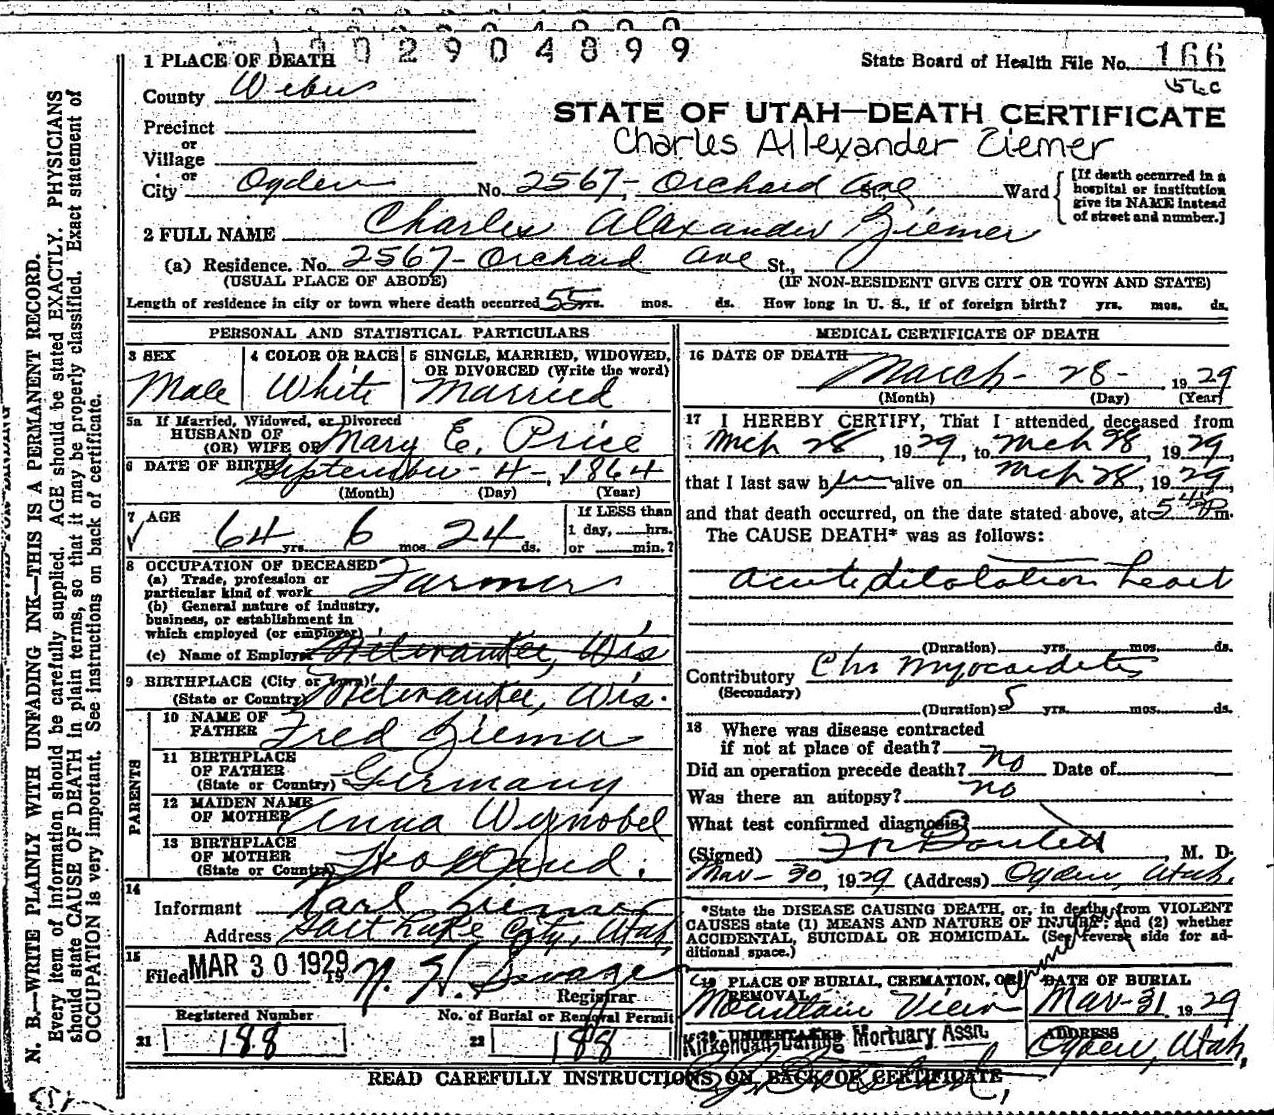 1 0 0 2 9 0 4 8 9 9
1 PLACE OF DEATH
State Board of Health File No. 166
County Weber
56c
STATE OF UTAH—DEATH CERTIFICATE
Precinct
or
Charles Allexander Ziemer
Village
or
City Ogden No. 2567- Orchard Ave St., Ward
[If death occurred in a hospital or institution give its NAME instead of street and number.]
2 FULL NAME Charles Alexander Ziemer
(a) Residence. No. 2567- Orchard Ave St.,
(USUAL PLACE OF ABODE) (IF NON-RESIDENT GIVE CITY OR TOWN AND STATE)
Length of residence in city or town where death occurred 55 yrs. mos. ds. How long in U. S., if of foreign birth? yrs. mos. ds.
PERSONAL AND STATISTICAL PARTICULARS
3 SEX Male
4 COLOR OR RACE White
5 SINGLE, MARRIED, WIDOWED, OR DIVORCED (Write the word) Married
5a If Married, Widowed, or Divorced
HUSBAND OF
(OR) WIFE OF Mary E. Price
6 DATE OF BIRTH September - 4 -, 1864
(Month) (Day) (Year)
7 AGE 64 yrs. 6 mos. 24 ds.
If LESS than 1 day, hrs. or min.?
8 OCCUPATION OF DECEASED
(a) Trade, profession or particular kind of work Farmer
(b) General nature of industry, business, or establishment in which employed (or employer)
(c) Name of Employer Milwaukee, Wis
9 BIRTHPLACE (City or Town)
(State or Country) Milwaukee, Wis.
PARENTS
10 NAME OF FATHER Fred Ziemer
11 BIRTHPLACE OF FATHER
(State or Country) Germany
12 MAIDEN NAME OF MOTHER Anna Wynobel
13 BIRTHPLACE OF MOTHER
(State or Country) Holland.
14
Informant Karl Ziemer
Address Salt Lake City, Utah
15
Filed MAR 30 1929 19
Registrar
Registered Number No. of Burial or Removal Permit
21 188 22 188
MEDICAL CERTIFICATE OF DEATH
16 DATE OF DEATH March - 28 - , 1929
(Month) (Day) (Year)
17 I HEREBY CERTIFY, That I attended deceased from
Mch 28, 1929, to Mch 28, 1929,
that I last saw him alive on Mch 28, 1929,
and that death occurred, on the date stated above, at 5 P.m.
The CAUSE DEATH* was as follows:
Acute dilatation heart
(Duration) yrs. mos. ds.
Contributory Chr myocarditis
(Secondary)
(Duration) 5 yrs. mos. ds.
18 Where was disease contracted
if not at place of death?
Did an operation precede death? no Date of
Was there an autopsy? no
What test confirmed diagnosis?
(Signed) , M. D.
Mar - 30, 1929 (Address) Ogden, Utah.
*State the DISEASE CAUSING DEATH, or, in deaths from VIOLENT
CAUSES state (1) MEANS AND NATURE OF INJURY; and (2) whether
ACCIDENTAL, SUICIDAL OR HOMICIDAL. (See reverse side for ad-
ditional space.)
19 PLACE OF BURIAL, CREMATION, OR REMOVAL Mountain View
DATE OF BURIAL Mar - 31 1929
20 UNDERTAKER Kirkendall-Darling Mortuary Assn.
ADDRESS Ogden, Utah,
READ CAREFULLY INSTRUCTIONS ON BACK OF CERTIFICATE
N. B.—WRITE PLAINLY WITH UNFADING INK—THIS IS A PERMANENT RECORD.
Every item of information should be carefully supplied. AGE should be stated EXACTLY. PHYSICIANS
should state CAUSE OF DEATH in plain terms, so that it may be properly classified. Exact statement of
OCCUPATION is very important. See instructions on back of certificate.